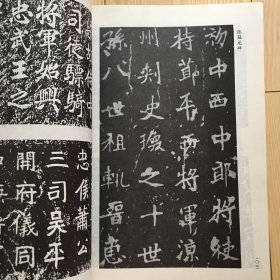 張猛龍碑
初中西中郎將使
持節平西將軍涼
州刺史瑍之十世
孫八世祖軌晉惠
司徒驃騎
將軍始興
忠武王之
忠侯蕭公
三司吳平
開府儀同